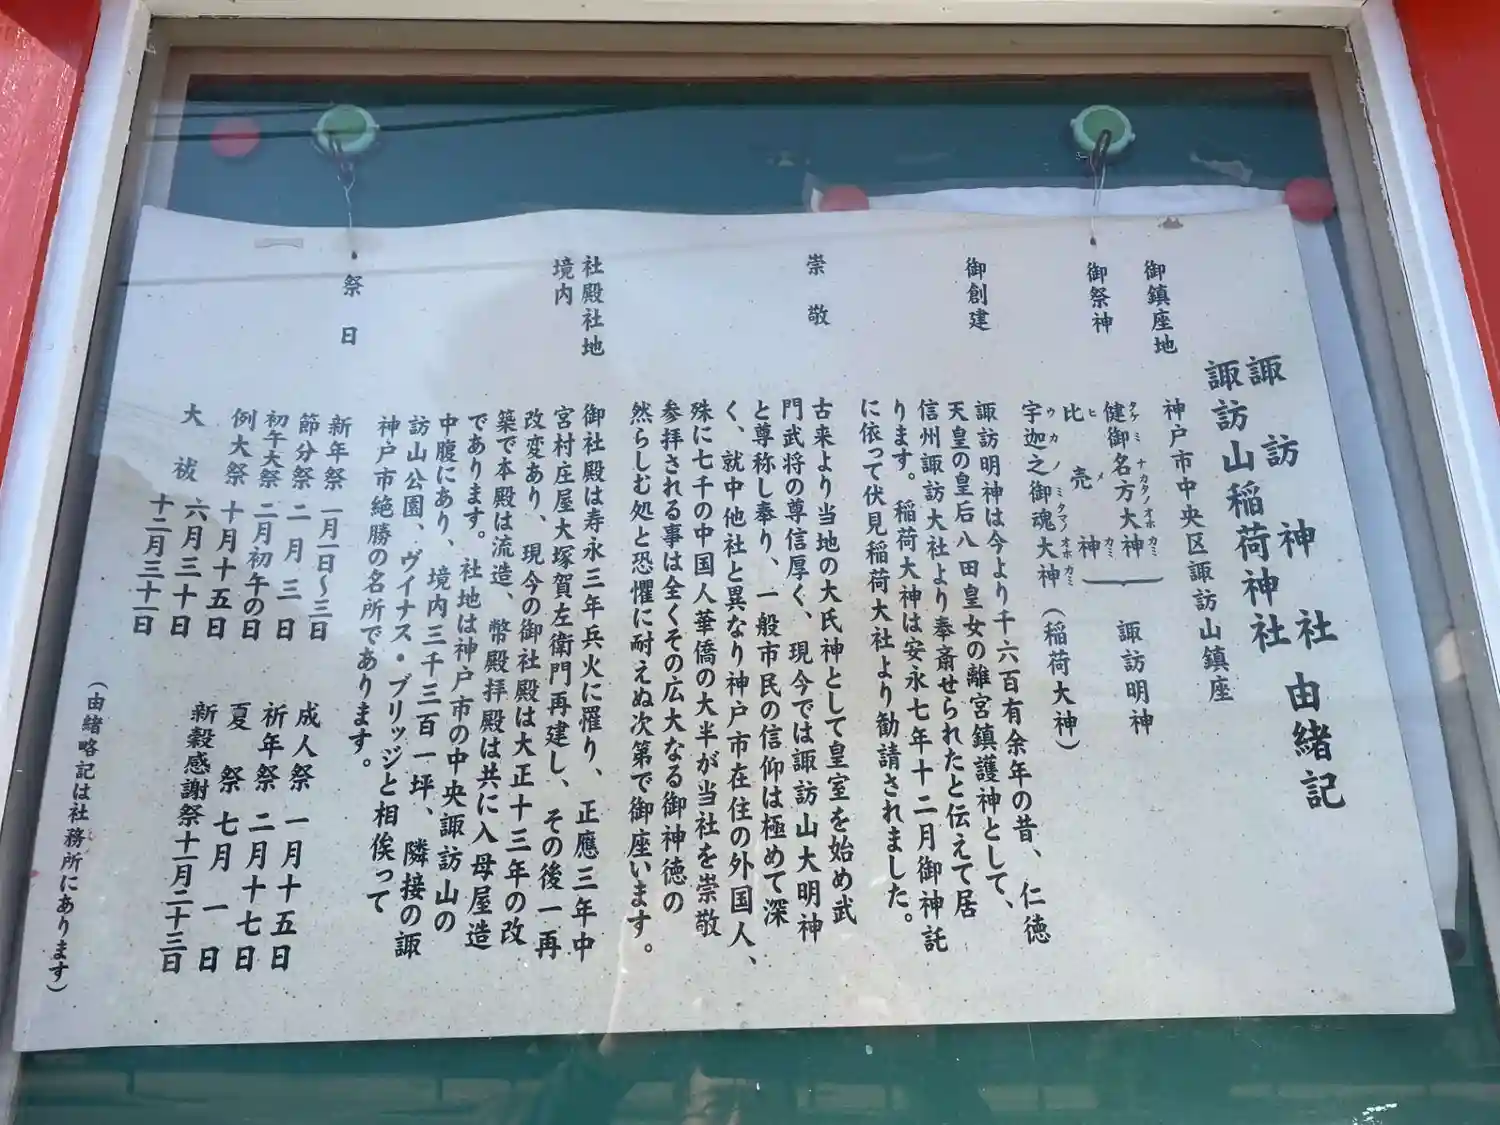 諏訪神社
諏訪山稲荷神社
由緒記
御鎮座地
神戸市中央区諏訪山鎮座
御祭神
健御名方大神
タケミナカタノオホカミ
比売神
ヒメカミ
諏訪明神
宇迦之御魂大神（稲荷大神）
ウカノミタマノオホカミ
御創建
諏訪明神は今より千六百有余年の昔、仁徳
天皇の皇后八田皇女の離宮鎮護神として、
信州諏訪大社より奉斎せられたと伝えて居
ります。稲荷大神は安永七年十二月御神託
に依って伏見稲荷大社より勧請されました。
崇敬
古来より当地の大氏神として皇室を始め武
門武将の尊信厚く、現今では諏訪山大明神
と尊称し奉り、一般市民の信仰は極めて深
く、就中他社と異なり神戸市在住の外国人、
殊に七千の中国人華僑の大半が当社を崇敬
参拝される事は全くその広大なる御神徳の
然らしむ処と恐懼に耐えぬ次第で御座います。
社殿社地
境内
御社殿は寿永三年兵火に罹り、正應三年中
宮村庄屋大塚賀左衛門再建し、その後一再
改変あり、現今の御社殿は大正十三年の改
築で本殿は流造、幣殿拝殿は共に入母屋造
であります。社地は神戸市の中央諏訪山の
中腹にあり、境内三千三百一坪、隣接の諏
訪山公園、ヴイナス・ブリッジと相俟って
神戸市絶勝の名所であります。
祭日
新年祭 一月一日〜三日
節分祭 二月三日
初午大祭 二月初午の日
例大祭 十月十五日
大祓 六月三十日
十二月三十一日
成人祭 一月十五日
祈年祭 二月十七日
夏祭 七月一日
新穀感謝祭 十一月二十三日
（由緒略記は社務所にあります）